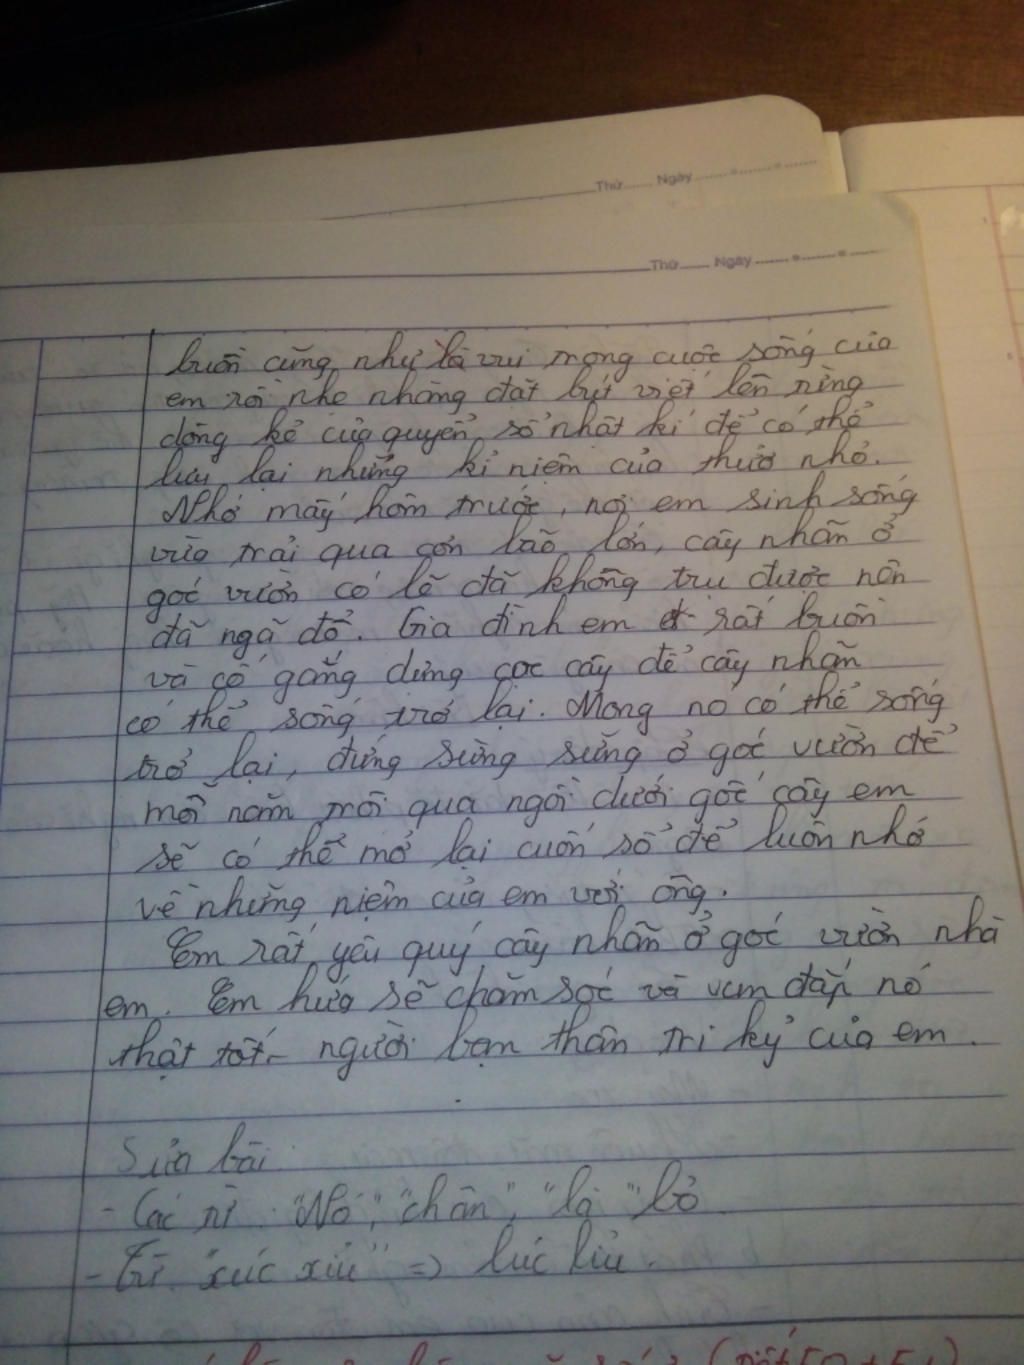 Thứ...... Ngày.......
Thứ...... Ngày.......
buồn cũng như là vui trong cuộc sống của
em rồi nhẹ nhàng đặt bút viết lên từng
dòng kẻ của quyển sổ nhật kí để có thể
lưu lại những kỉ niệm của thuở nhỏ.
Nhớ mấy hôm trước, nơi em sinh sống
vừa trải qua cơn bão lớn, cây nhãn ở
góc vườn có lẽ đã không trụ được nên
đã ngã đổ. Gia đình em rất buồn
và cố gắng dựng cọc cây để cây nhãn
có thể sống trở lại. Mong nó có thể sống
trở lại, đứng sừng sững ở góc vườn để
mỗi năm trôi qua ngồi dưới gốc cây em
sẽ có thể mở lại cuốn sổ để luôn nhớ
về những niệm của em với ông.
Em rất yêu quý cây nhãn ở góc vườn nhà
em. Em hứa sẽ chăm sóc và vun đắp nó
thật tốt - người bạn thân tri kỷ của em.
Sửa bài
- Các từ: "Nó", "chân", "là" bỏ
- Từ "xúc xíu" => lúc lỉu.